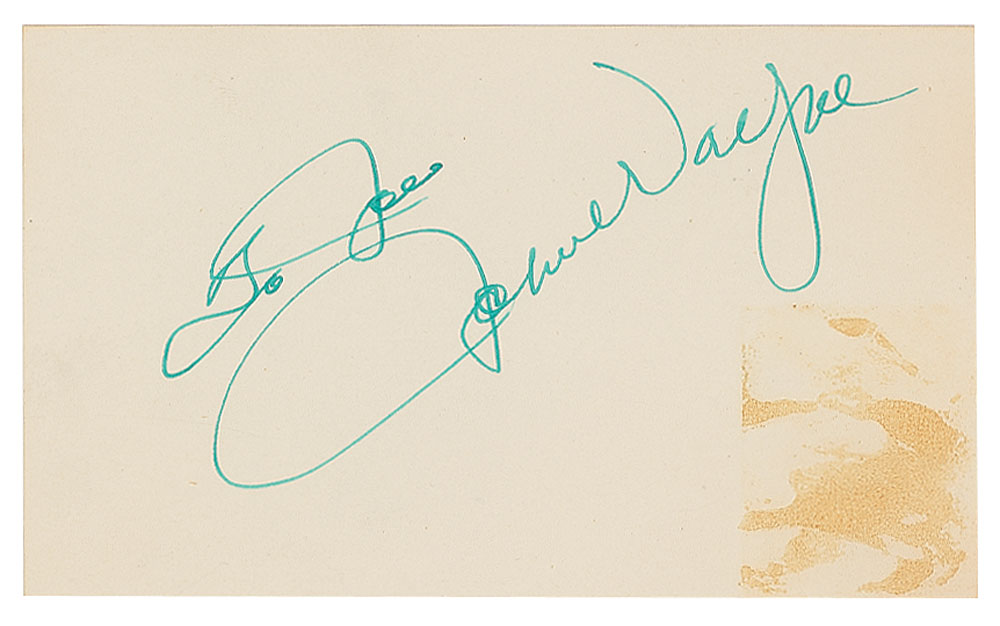 To Joe
John Wayne